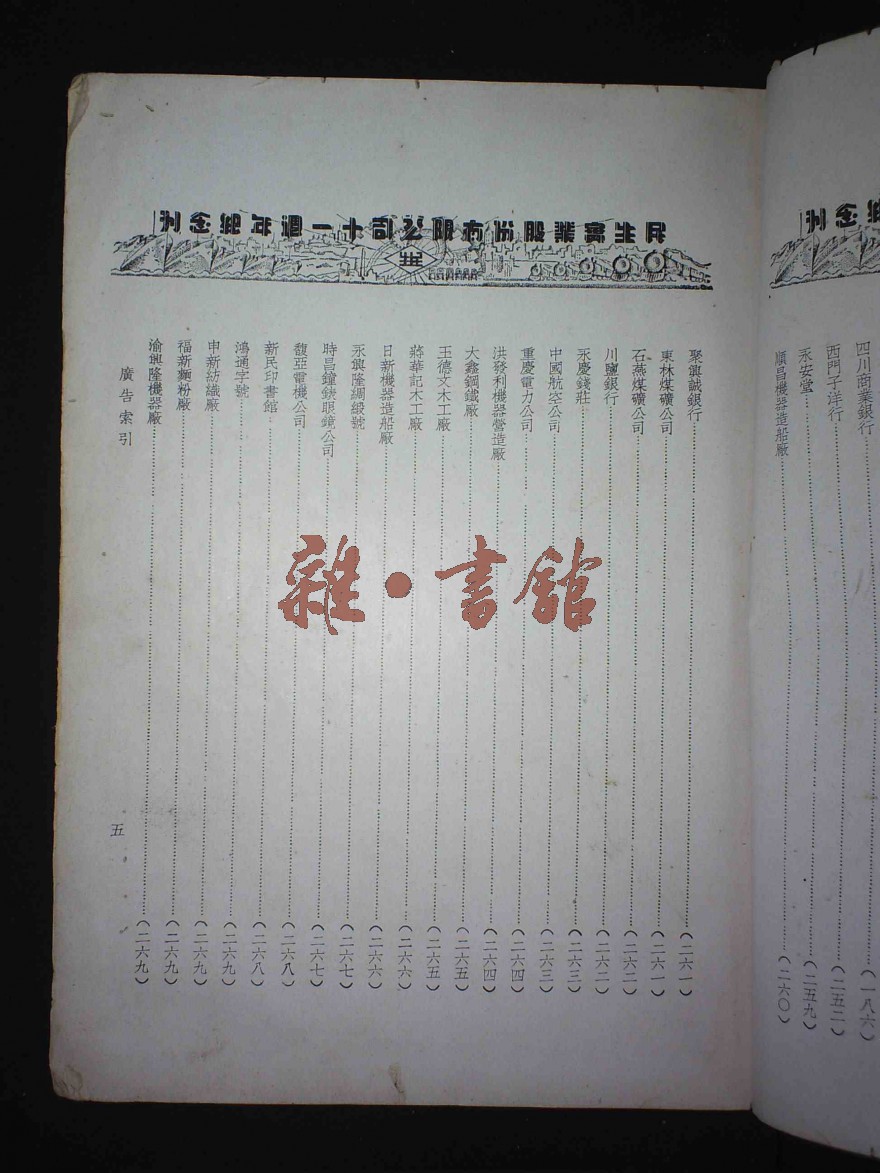 民生實業股份有限公司十一週年紀念刊
聚興誠銀行……(二六一)
東林煤礦公司……(二六一)
石燕煤礦公司……(二六二)
川鹽銀行……(二六二)
永慶錢莊……(二六三)
中國航空公司……(二六三)
重慶電力公司……(二六四)
洪發利機器營造廠……(二六四)
大鑫鋼鐵廠……(二六五)
王德文木工廠……(二六五)
蔣華記木工廠……(二六六)
日新機器造船廠……(二六六)
永興隆綢緞號……(二六七)
時昌鐘錶眼鏡公司……(二六七)
馥亞電機公司……(二六八)
新民印書館……(二六八)
鴻通字號……(二六九)
申新紡織廠……(二六九)
福新麵粉廠……(二六九)
渝興隆機器廠……(二六九)
廣告索引
五
紀念刊
四川商業銀行……(一八六)
西門子洋行……(二五二)
永安堂……(二五九)
順昌機器造船廠……(二六〇)
雜·書館